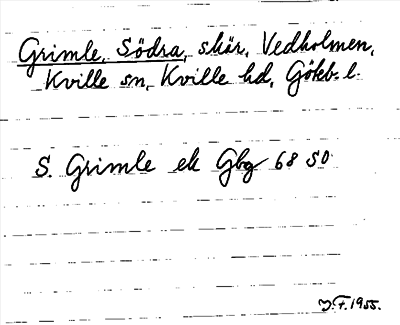 Grimle, Södra, skär, Vedholmen,
Kville sn, Kville hd, Göteb. l.
S. Grimle ek Gbg 68 SO
J.F. 1955.